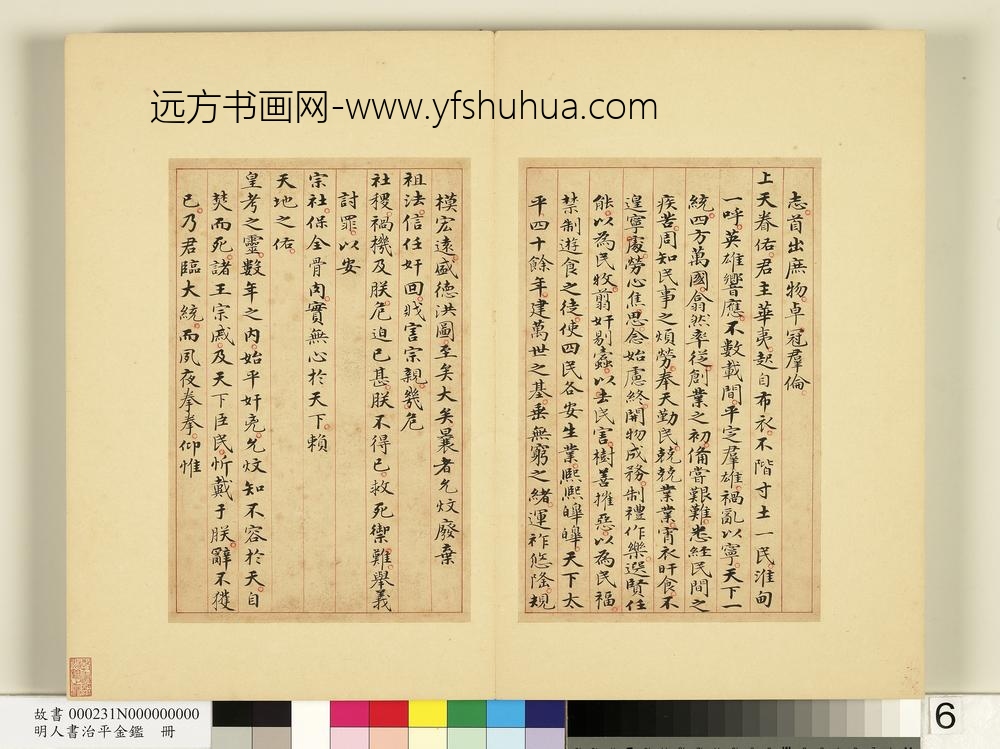 远方书画网-www.yfshuhua.com
志首出庶物卓冠羣倫
上天眷佑君主華夷起自布衣不階寸土一民淮甸
一呼英雄響應不數載間平定羣雄禍亂以寧天下一
統四方萬國翕然率從創業之初備嘗艱難悉經民間之
疾苦周知民事之煩勞奉天勤民兢兢業業宵衣旰食不
遑寧處勞心焦思念始慮終開物成務制禮作樂選賢任
能以為民牧翦奸剔蠹以去民害樹善摧惡以為民福
禁制遊食之徒使四民各安生業熙熙皞皞天下太
平四十餘年建萬世之基垂無窮之緒運祚悠隆規
模宏遠盛德洪圖至矣大矣曩者允炆廢棄
祖法信任奸回戕害宗親幾危
社稷禍機及朕危迫已甚朕不得已救死禦難舉義
討罪以安
宗社保全骨肉實無心於天下賴
天地之佑
皇考之靈數年之內始平奸兇允炆知不容於天自
焚而死諸王宗戚及天下臣民忻戴于朕辭不獲
已乃君臨大統而夙夜拳拳仰惟
故書 000231N000000000
明人書治平金鑑 冊
6